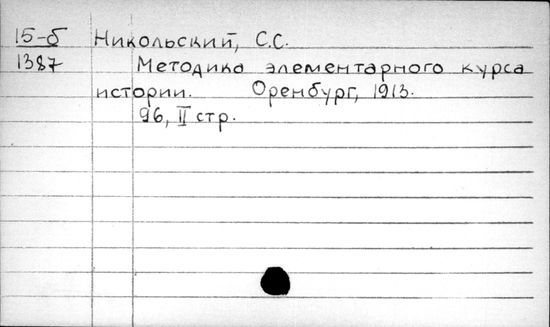 15-б Никольский, С.С.
1387 Методика элементарного курса
истории. Оренбург, 1913.
96, II стр.